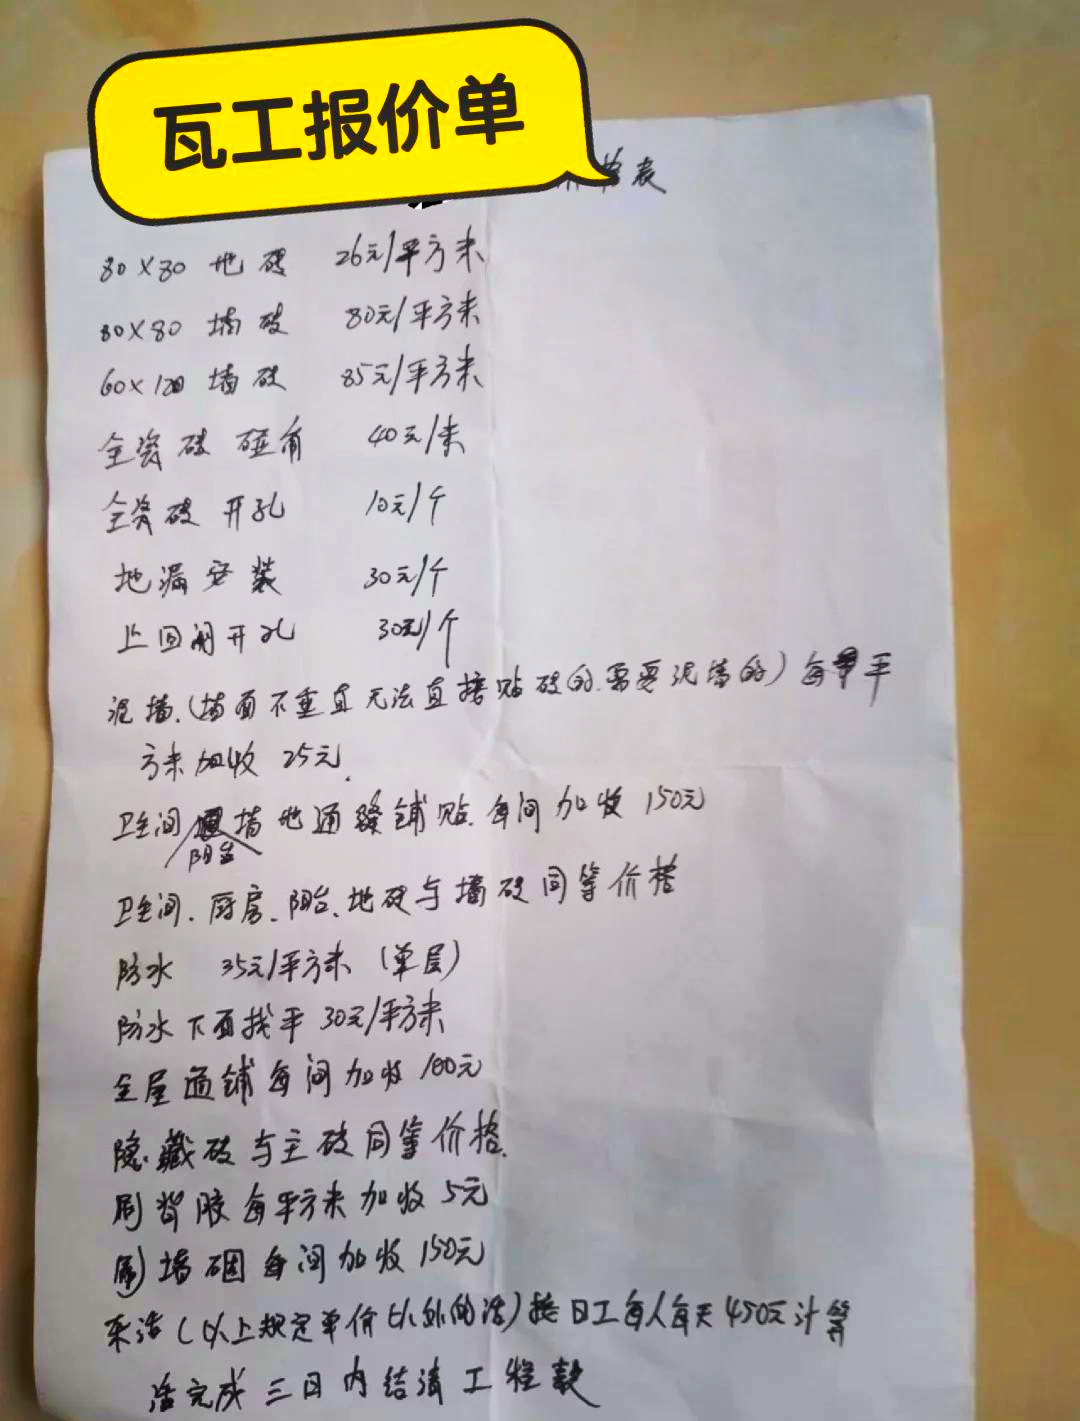 瓦工报价单
价格表
80×80 地砖 26元/平方米
80×80 墙砖 80元/平方米
60×120 墙砖 85元/平方米
全瓷砖 碰角 40元/米
全瓷砖 开孔 10元/个
地漏安装 30元/个
止回阀开孔 30元/个
泥墙.(墙面不垂直无法直接贴砖的.需要泥墙的)每平
方米加收 25元.
卫生间 墙地通缝铺贴.每间加收 150元
阳台
卫生间.厨房.阳台.地砖与墙砖同等价格
防水 35元/平方米 (单层)
防水下面找平 30元/平方米
全屋通铺每间加收 100元
隐藏砖与主砖同等价格.
刷背胶每平方米加收 5元
刷墙固每间加收 150元
杂活(以上规定单价以外的活)按日工每人每天450元计算
活完成三日内结清工程款